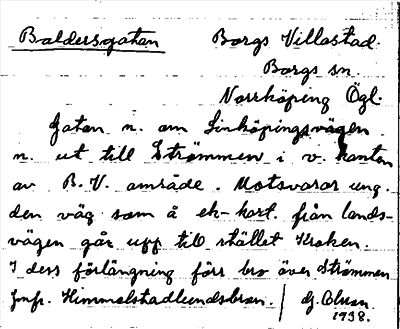 Baldersgatan Borgs Villastad.
Borgs sn.
Norrköping Ögl.
Gatan n. om Linköpingsvägen
n. ut till Strömmen i v. kanten
av B. V. område. Motsvarar ung.
den väg som å ek-kart. från lands-
vägen går upp till stället Kroken.
I dess förlängning förr bro över Strömmen
Jmfr. Himmelstadlundsbron. /
1938.